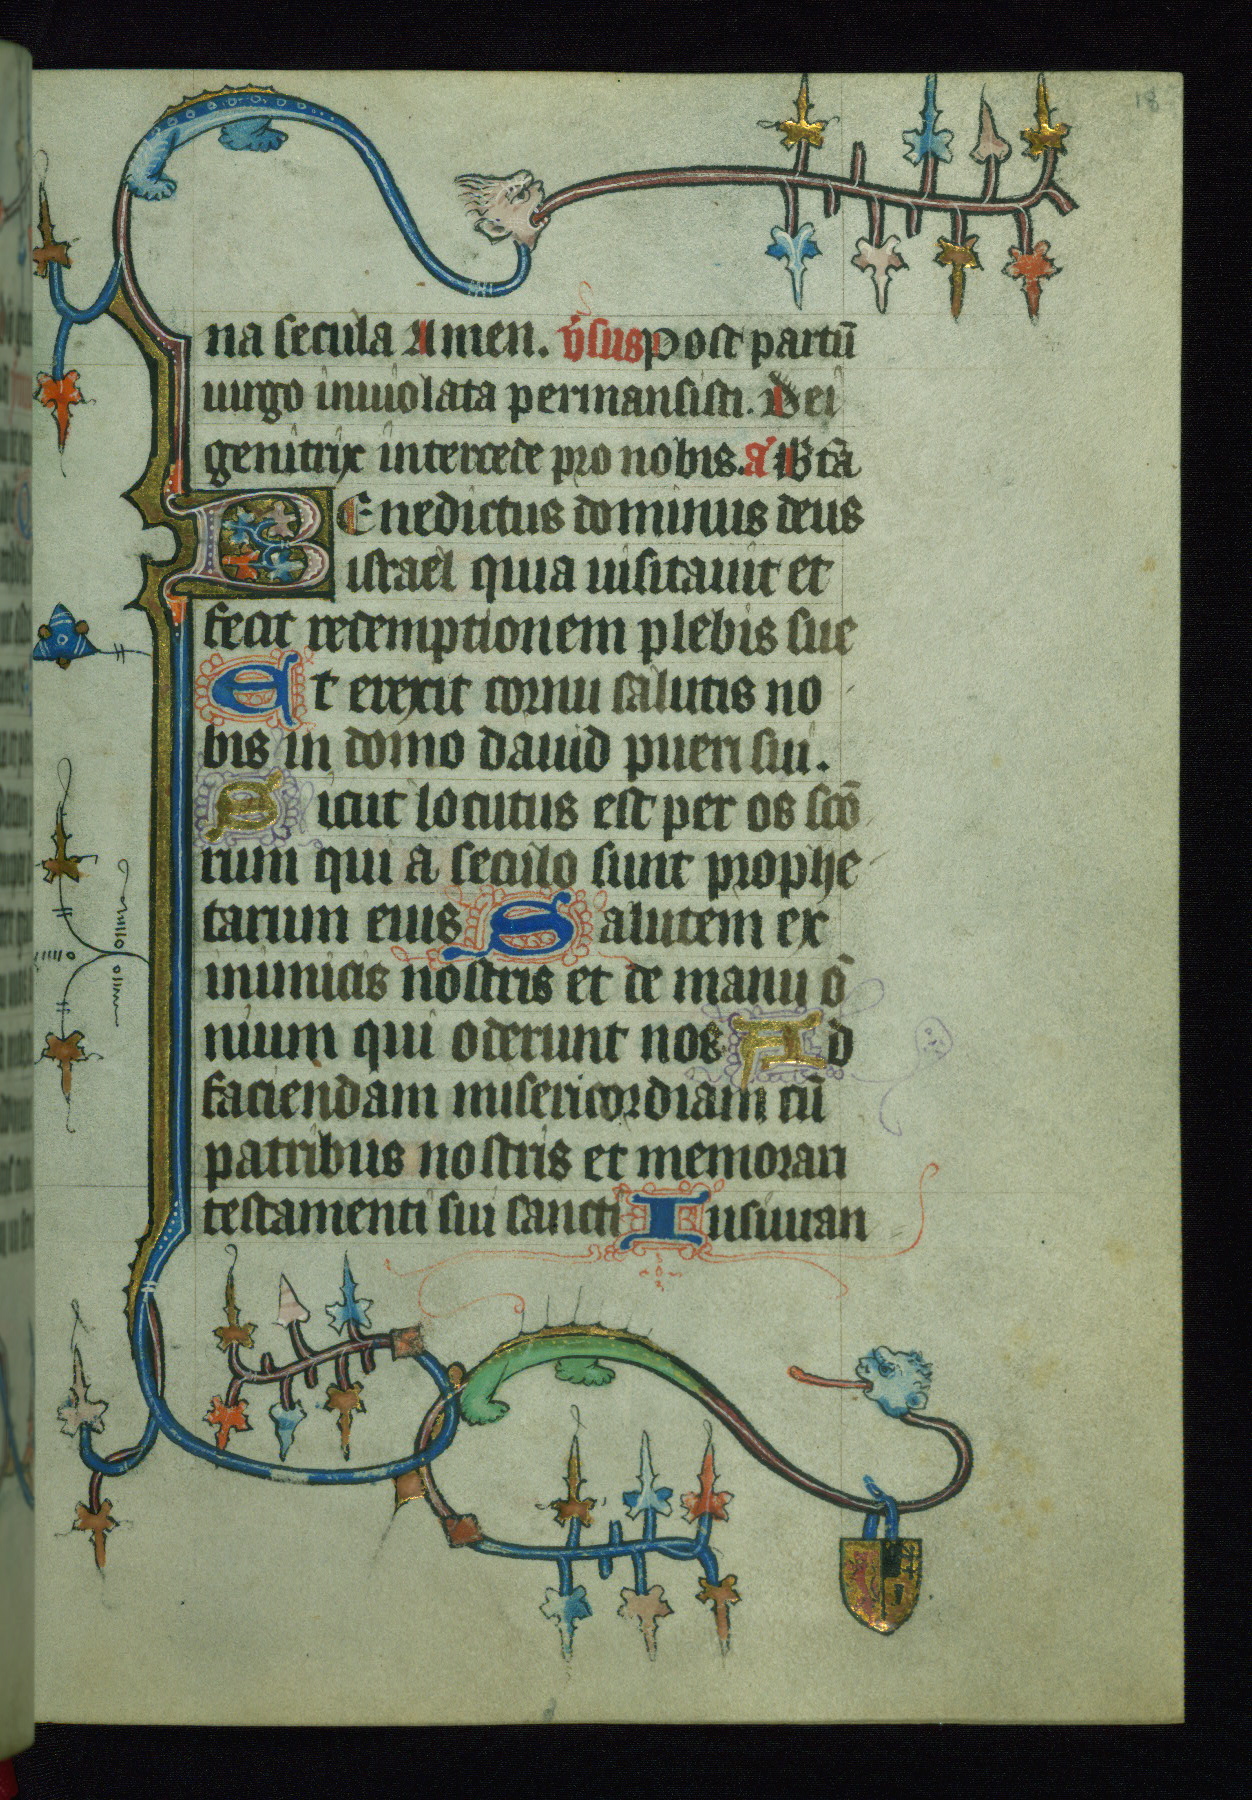 18
na secula Amen. v̄sus post partū
uirgo inuiolata permansisti. Dei
genitrix intercede pro nobis. a̅ Bt̄a
Benedictus dominus deus
israel quia uisitauit et
fecit redemptionem plebis sue
Et erexit cornu salutis no
bis in domo dauid pueri sui.
Sicut locutus est per os sc̄o
rum qui a seculo sunt prophe
tarum eius Salutem ex
inimicis nostris et de manu ō
nium qui oderunt nos Ad
faciendam misericordiam cū
patribus nostris et memorari
testamenti sui sancti Iusiuran